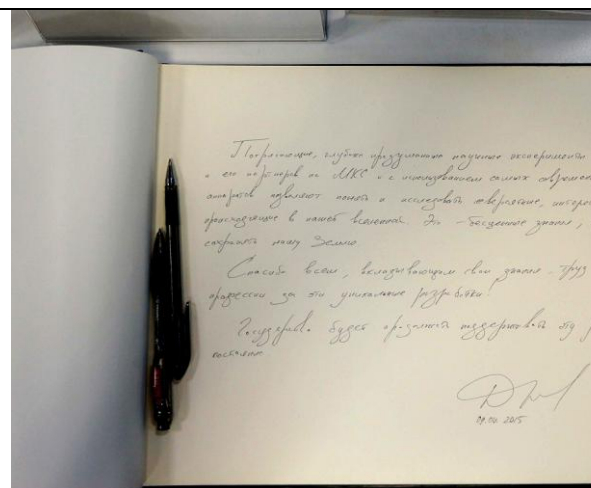 Потрясающие, глубоко продуманные научные эксперименты
и его партнеров на МКС и с использованием самых
аппаратов позволяют понять и исследовать
происходящие в нашей вселенной. Это – бесценные знания,
сохранить нашу Землю.
Спасибо всем, вкладывающим свои знания
за эти уникальные разработки!
Государство будет продолжать поддерживать эту